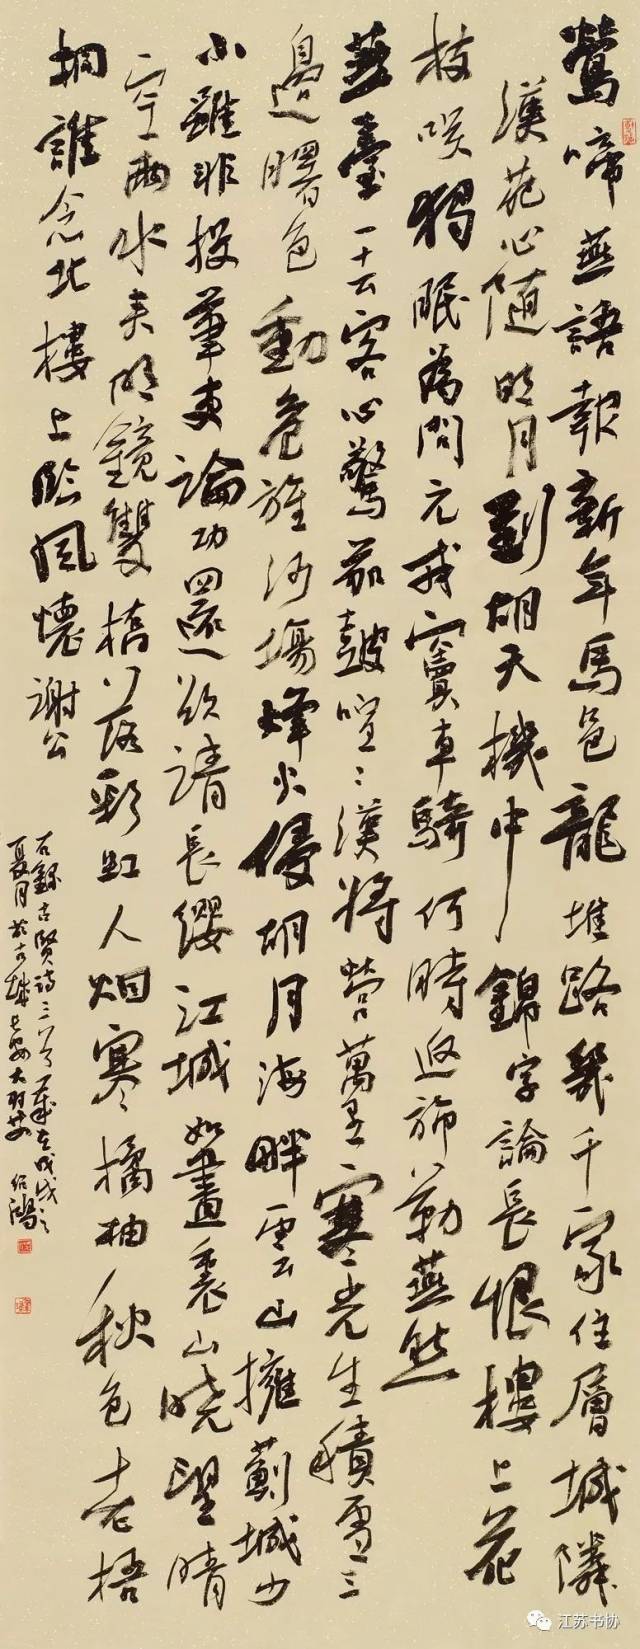 鶯啼燕語報新年馬邑龍堆路幾千家住層城隣
漢苑心隨明月到胡天機中錦字論長恨樓上花
枝咲獨眠為問元戎竇車騎何時返旆勒燕然
燕臺一去客心驚笳鼓喧〻漢將營萬里寒光生積雪三
邊曙色動危旌沙場烽火侵胡月海畔雲山擁薊城少
小雖非投筆吏論功還欲請長纓江城如畫裏山曉望晴
空兩水夾明鏡雙橋落彩虹人烟寒橘柚秋色老梧
桐誰念北樓上臨風懷謝公
右錄古賢詩三首歲在戊戌之
夏月於古城
江苏书协